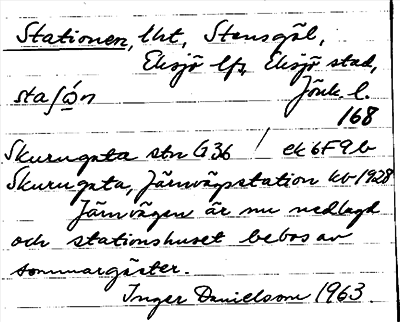 Stationen, lht, Stensgöl,
Eksjö lfs, Eksjö stad,
Jönk. l.
168
Skurugata stn G36 / ek 6F9b
Skurugata, Järnvägsstation kb 1928
Järnvägen är nu nedlagd
och stationshuset bebos av
sommargäster.
Inger Danielsson 1963.